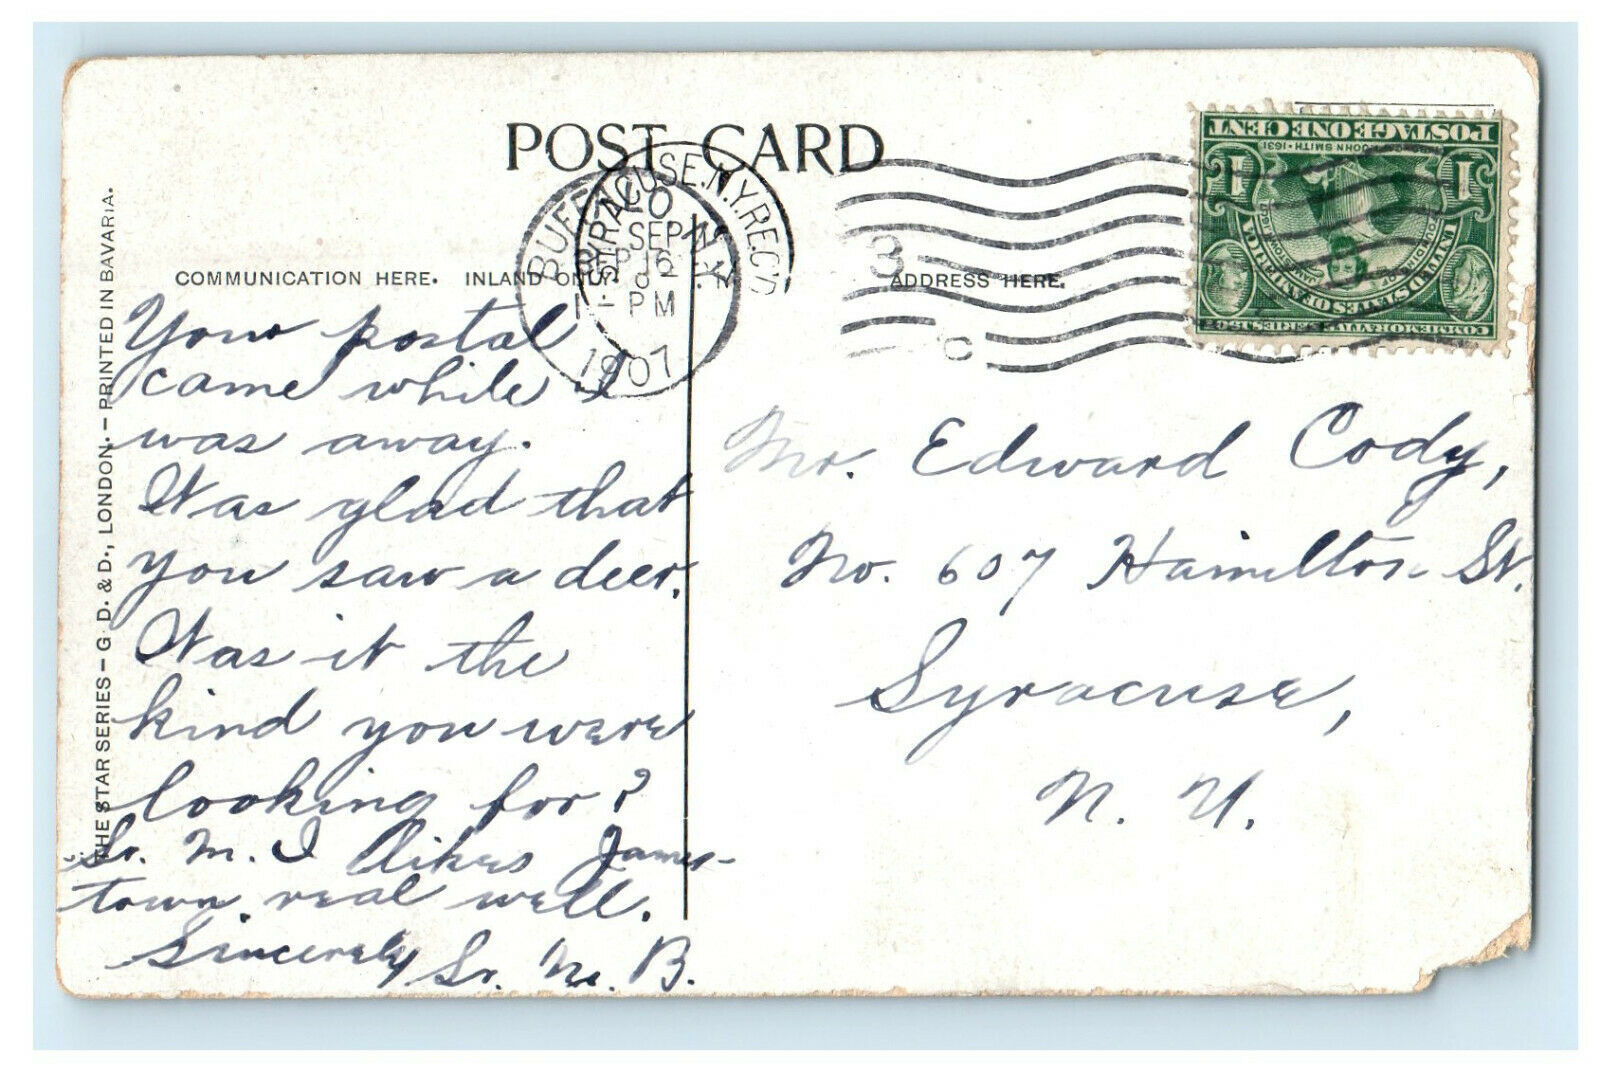 POST CARD
BUFFALO N.Y.
SEP 16
PM
1907
SYRACUSE, N.Y. REC'D
SEP
3
C
COMMUNICATION HERE. INLAND ONLY.
ADDRESS HERE.
THE STAR SERIES – G. D. & D., LONDON. – PRINTED IN BAVARIA.
Your postal
came while I
was away.
Was glad that
you saw a deer.
Was it the
kind you were
looking for?
Sr. M. I likes James-
town real well.
Sincerely Sr. M. B.
Mr. Edward Cody,
No. 607 Hamilton St.
Syracuse,
N. Y.
POSTAGE ONE CENT
JOHN SMITH · 1631
1 1
FOUNDING OF JAMESTOWN 1607
UNITED STATES OF AMERICA
COMMEMORATIVE SERIES 1907